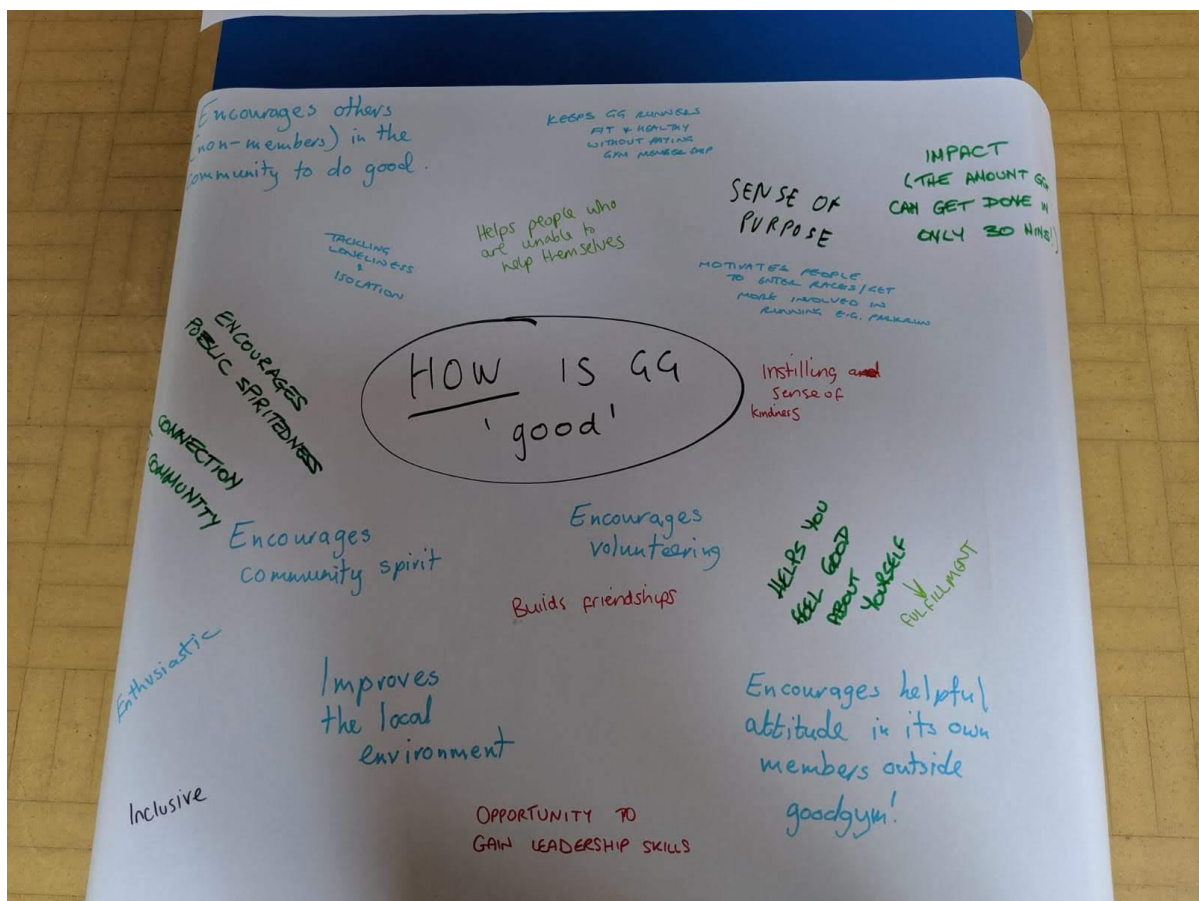 Encourages others
(non-members) in the
community to do good.
KEEPS GG RUNNERS
FIT & HEALTHY
WITHOUT PAYING
GYM MEMBERSHIP
IMPACT
(THE AMOUNT GG
CAN GET DONE IN
ONLY 30 MINS!)
SENSE OF
PURPOSE
Helps people who
are unable to
help themselves
TACKLING
LONELINESS
&
ISOLATION
MOTIVATES PEOPLE
TO ENTER RACES/GET
MORE INVOLVED IN
RUNNING E.G. PARKRUN
ENCOURAGES
PUBLIC SPIRITEDNESS
HOW IS GG
'good'
Instilling a
sense of
kindness
CONNECTION
COMMUNITY
Encourages
community spirit
Encourages
volunteering
HELPS YOU
FEEL GOOD
ABOUT
YOURSELF
FULFILLMENT
Builds friendships
Enthusiastic
Improves
the local
environment
Encourages helpful
attitude in its own
members outside
goodgym!
Inclusive
OPPORTUNITY TO
GAIN LEADERSHIP SKILLS